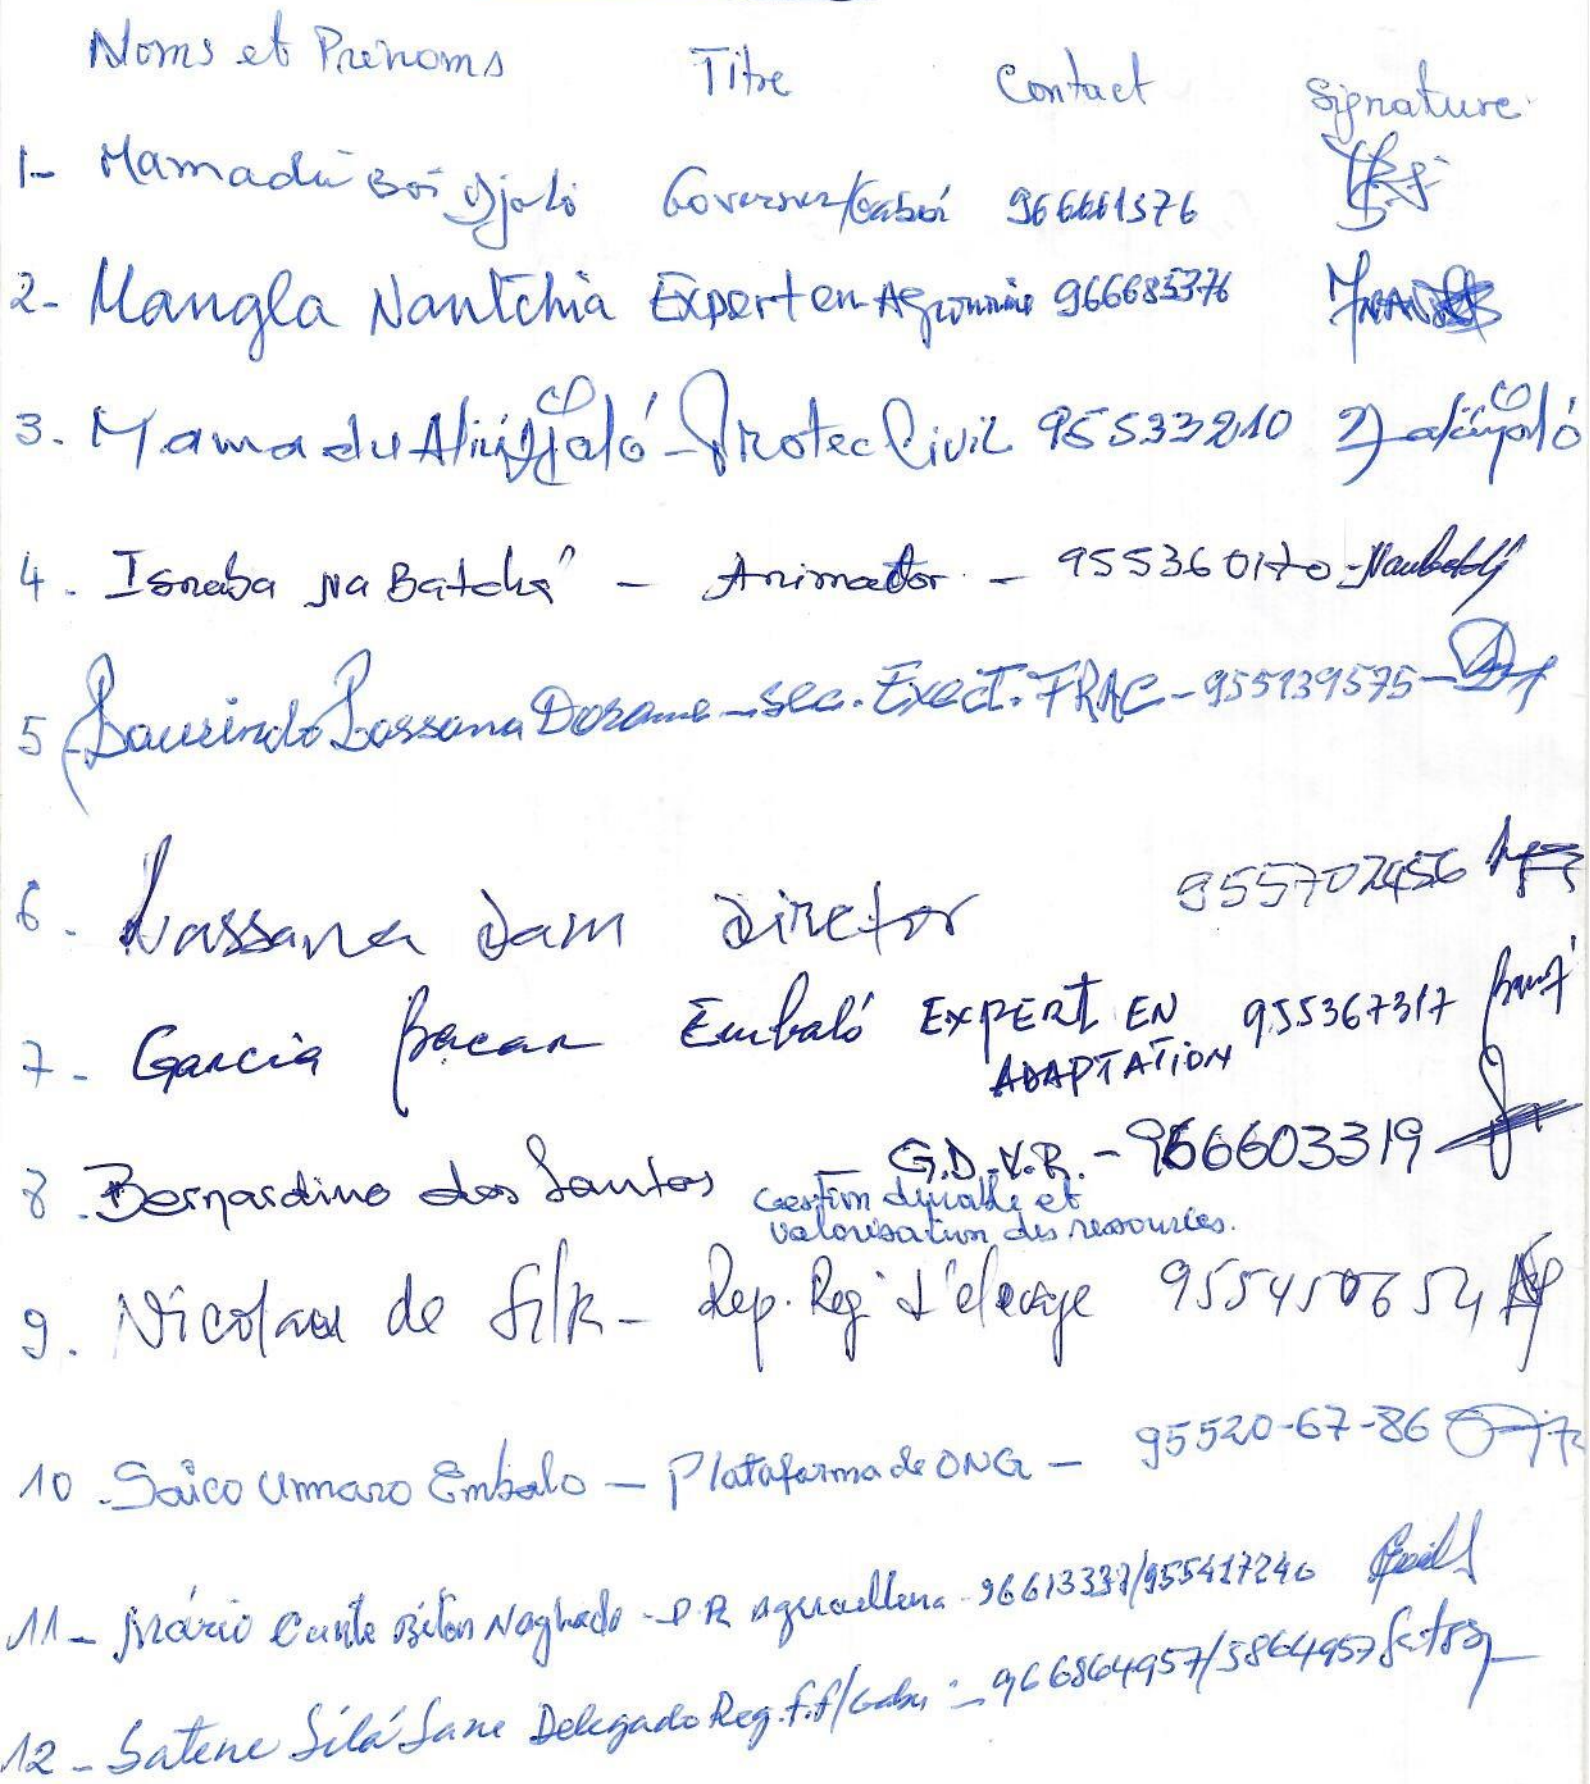 Noms et Prénoms Titre Contact Signature
1- Mamadú Boi Djaló Governor/Gabú 966661376
2- Mangla Nantchia Expert en Agronomie 966685376
3. Mamadu Aliu Djaló - Protec Civil 955332210
4. Isnaba Na Batchá - Animador - 955360170
5 - Laurindo Lassana Dorame - sec. Exect. FRAC - 955139575
6. Lassana Dam Diretor 955702456
7- Garcia Bacar Embaló EXPERT EN 955367317
ADAPTATION
8. Bernardino dos Santos G.D.V.R. - 966603319
Gestion durable et
valorisation des ressources.
9. Nicolau de - Rep. Reg. d'élevage 955450654
10. Saico Ummaro Embalo - Plataforma de ONG - 95520-67-86
11- Mário - D.R /955417240
12- Satene Silá Sane Delegado Reg. F.F/Gabu - 966864957/5864957